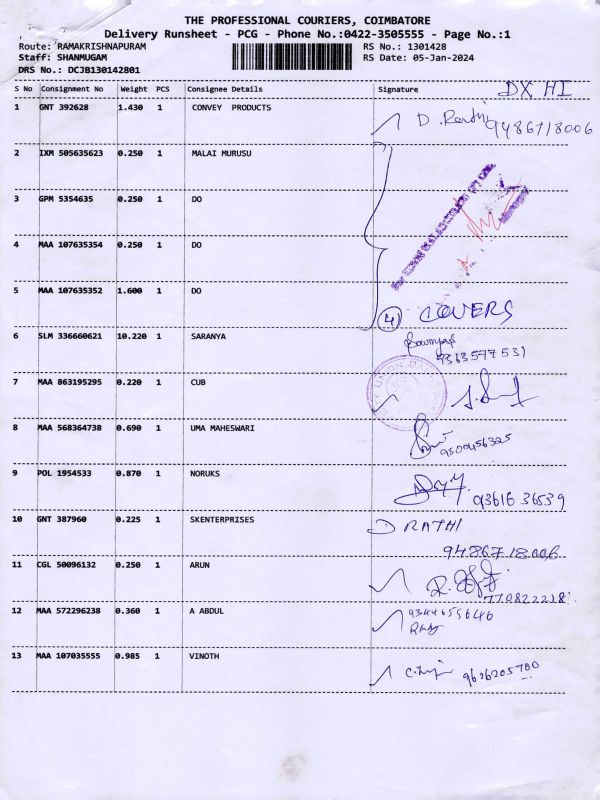 THE PROFESSIONAL COURIERS, COIMBATORE
Delivery Runsheet - PCG - Phone No.:0422-3505555 - Page No.:1
Route: RAMAKRISHNAPURAM RS No.: 1301428
Staff: SHANMUGAM RS Date: 05-Jan-2024
DRS No.: DCJB130142801
S No Consignment No Weight PCS Consignee Details Signature DX HI
1 GNT 392628 1.430 1 CONVEY PRODUCTS
9486718006
2 IXM 505635623 0.250 1 MALAI MURUSU
3 GPM 5354635 0.250 1 DO
4 MAA 107635354 0.250 1 DO
5 MAA 107635352 1.600 1 DO
4 COVERS
6 SLM 336660621 10.220 1 SARANYA
9363577531
7 MAA 863195295 0.220 1 CUB
8 MAA 568364738 0.690 1 UMA MAHESWARI
9500456325
9 POL 1954533 0.870 1 NORUKS
93616 36539
10 GNT 387960 0.225 1 SKENTERPRISES D RATHI
9486718006
11 CGL 50096132 0.250 1 ARUN
770822218
12 MAA 572296238 0.360 1 A ABDUL
13 MAA 107035555 0.985 1 VINOTH
9626205700